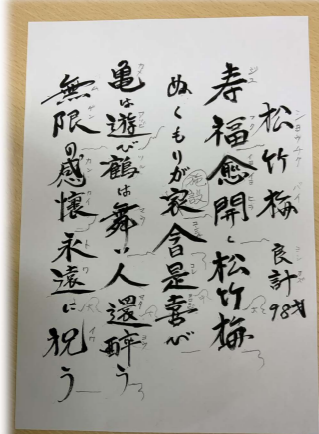 松竹梅
良計
98才
寿福愈開く松竹梅
施設
ぬくもりが家舎是喜び
亀は遊び鶴は舞い人還酔う
無限の感懐永遠に祝う